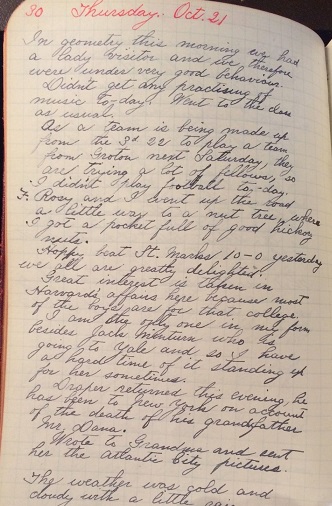 30 Thursday. Oct. 21
In geometry this morning we had
a lady visitor and we, therefore,
were under very good behaviour.
Didn't get any practising of
music to-day. Went to the class
as usual.
As a team is being made up
from the 3d 22 to play a team
from Groton next Saturday, they
are trying a lot of fellows, so
I didn't play football to-day.
F. Rosy and I went up the road
a little way to a nut tree, where
I got a pocket full of good hickory
nuts.
Hoppy beat St. Marks 10-0 yesterday
we all are greatly delighted.
Great interest is taken in
Harvards affairs here because most
of the boys are for that college,
I am the only one in my form
besides Jack Minturn who is
going to Yale and so I have
a hard time of it standing up
for her sometimes.
Draper returned this evening, he
has been to New York on account
of the death of his grandfather
Mr. Dana.
Wrote to Grandma and sent
her the Atlantic City pictures.
The weather was cold and
cloudy with a little